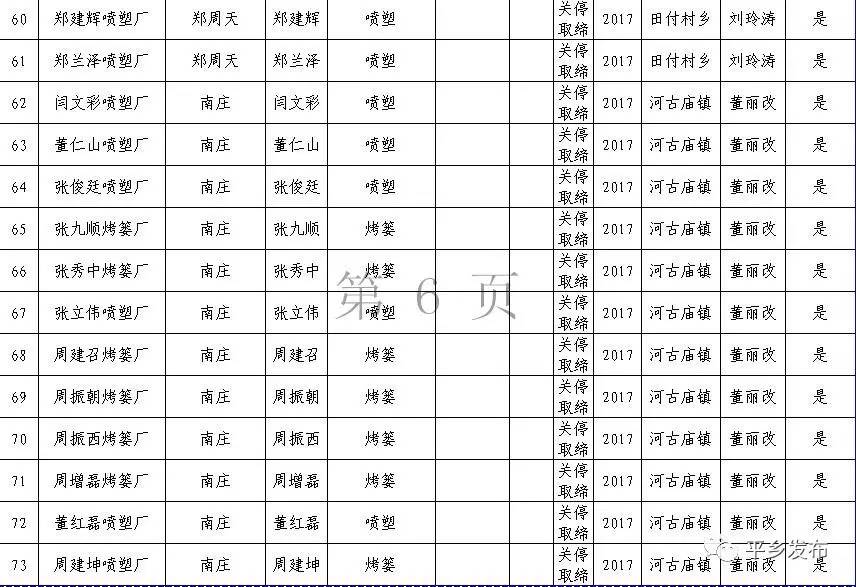 60 郑建辉喷塑厂 郑周天 郑建辉 喷塑 关停取缔 2017 田付村乡 刘玲涛 是
61 郑兰泽喷塑厂 郑周天 郑兰泽 喷塑 关停取缔 2017 田付村乡 刘玲涛 是
62 闫文彩喷塑厂 南庄 闫文彩 喷塑 关停取缔 2017 河古庙镇 董丽改 是
63 董仁山喷塑厂 南庄 董仁山 喷塑 关停取缔 2017 河古庙镇 董丽改 是
64 张俊廷喷塑厂 南庄 张俊廷 喷塑 关停取缔 2017 河古庙镇 董丽改 是
65 张九顺烤篓厂 南庄 张九顺 烤篓 关停取缔 2017 河古庙镇 董丽改 是
66 张秀中烤篓厂 南庄 张秀中 烤篓 关停取缔 2017 河古庙镇 董丽改 是
67 张立伟喷塑厂 南庄 张立伟 喷塑 关停取缔 2017 河古庙镇 董丽改 是
第 6 页
68 周建召烤篓厂 南庄 周建召 烤篓 关停取缔 2017 河古庙镇 董丽改 是
69 周振朝烤篓厂 南庄 周振朝 烤篓 关停取缔 2017 河古庙镇 董丽改 是
70 周振西烤篓厂 南庄 周振西 烤篓 关停取缔 2017 河古庙镇 董丽改 是
71 周增磊烤篓厂 南庄 周增磊 烤篓 关停取缔 2017 河古庙镇 董丽改 是
72 董红磊喷塑厂 南庄 董红磊 喷塑 关停取缔 2017 河古庙镇 董丽改 是
73 周建坤喷塑厂 南庄 周建坤 烤篓 关停取缔 2017 河古庙镇 董丽改 是
平乡发布